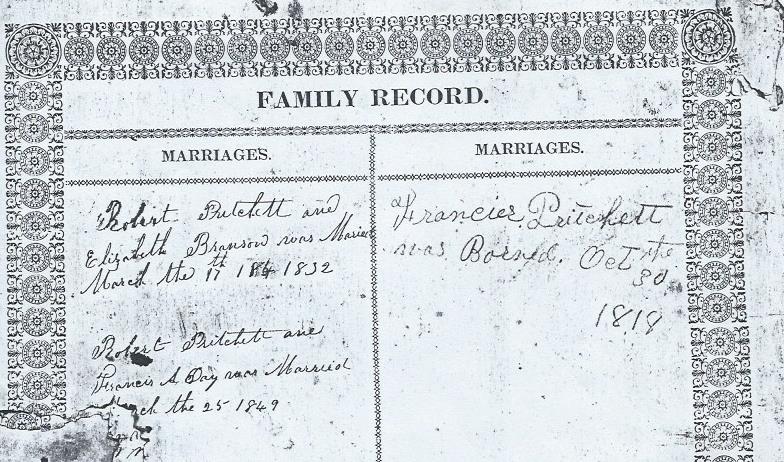 FAMILY RECORD.
MARRIAGES.
Robert Pritchett and
Elizabeth Branson was Maried
March the 17th 1832
Robert Pritchett and
Francis A Day was Married
March the 25 1849
MARRIAGES.
Francies Pritchett
was Borned. Oct the
30
1818